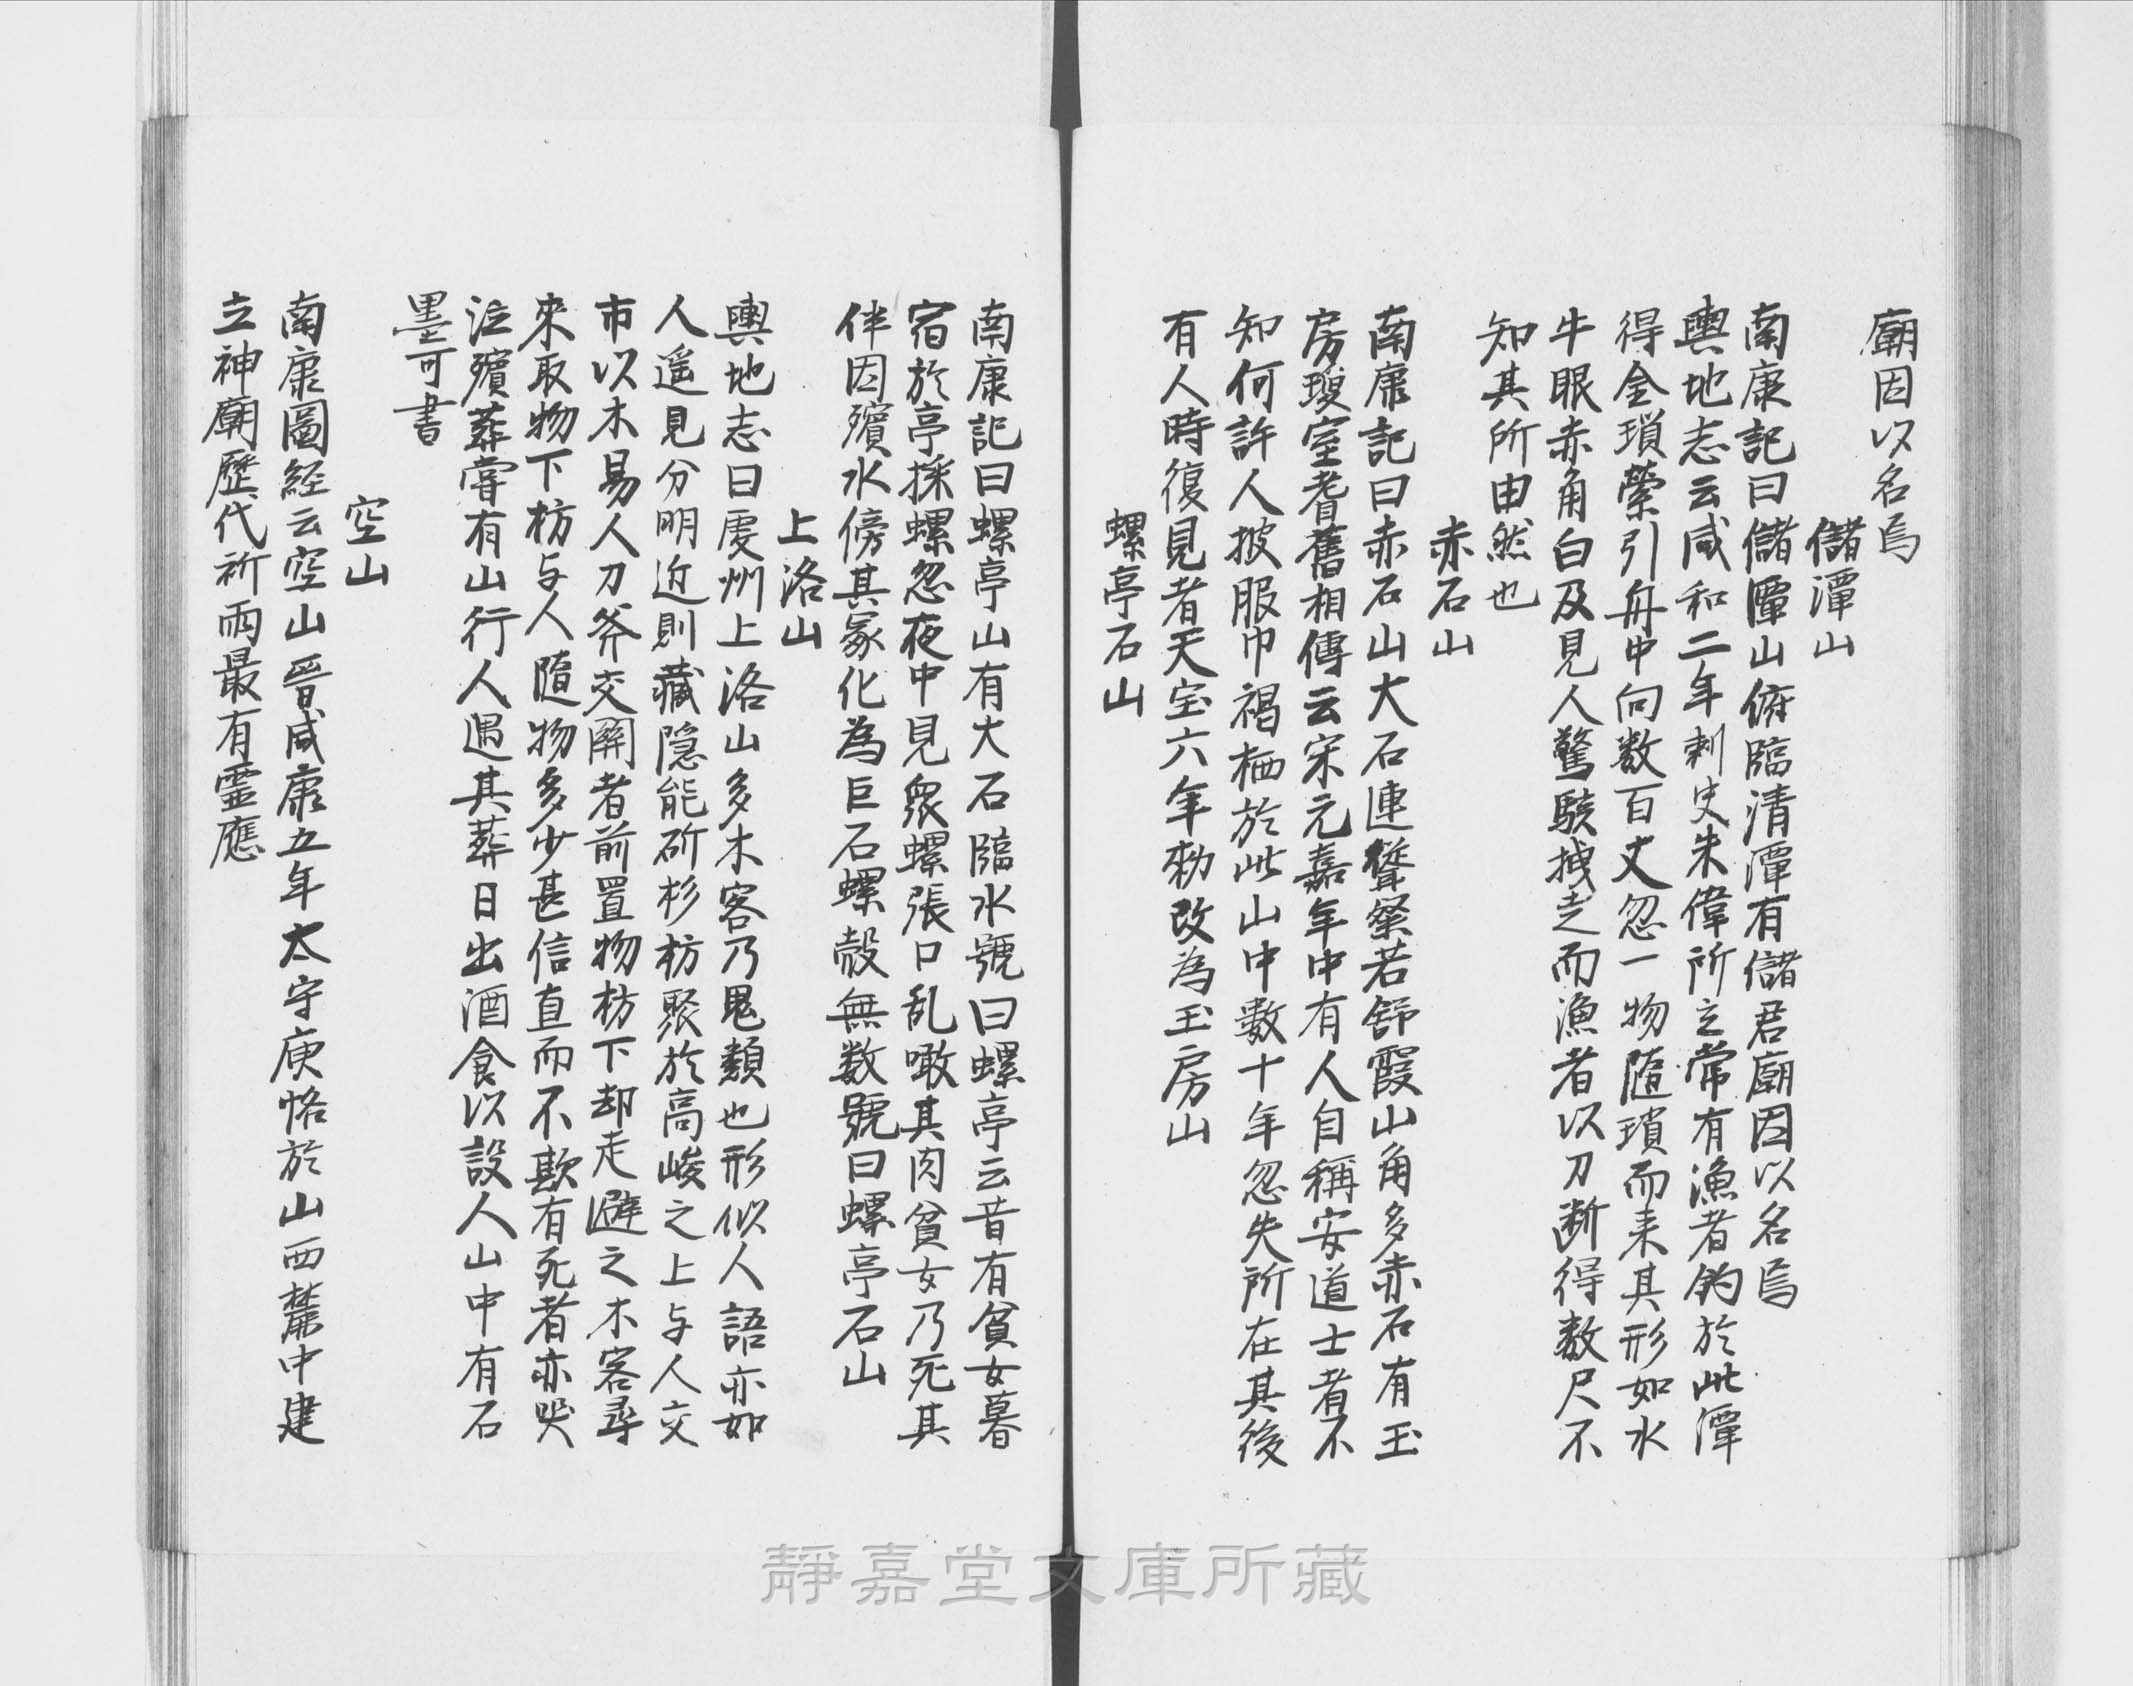 廟因以名焉
儲潭山
南康記曰儲潭山俯臨清潭有儲君廟因以名焉
輿地志云咸和二年刺史朱偉所立常有漁者釣於此潭
得金瑣縈引舟中向数百丈忽一物隨瑣而来其形如水
牛眼赤角白及見人驚駭拽走而漁者以刀断得数尺不
知其所由然也
赤石山
南康記曰赤石山大石連聳粲若舒霞山角多赤石有玉
房瓊室耆舊相傳云宋元嘉年中有人自稱安道士者不
知何許人披服巾褐栖於此山中数十年忽失所在其後
有人時復見者天宝六年勑改為玉房山
螺亭石山
南康記曰螺亭山有大石臨水號曰螺亭云昔有貧女暮
宿於亭採螺忽夜中見眾螺張口乱噉其肉貧女乃死其
伴因殯水傍其冢化為巨石螺殻無数號曰螺亭石山
上洛山
輿地志曰虔州上洛山多木客乃鬼類也形似人語亦如
人遥見分明近則藏隐能斫杉枋聚於高峻之上与人交
市以木易人刀斧交關者前置物枋下却走避之木客尋
來取物下枋与人隨物多少甚信直而不欺有死者亦哭
泣殯葬嘗有山行人遇其葬日出酒食以設人山中有石
墨可書
空山
南康圖経云空山晉咸康五年太守庾恪於山西麓中建
立神廟歷代祈雨最有霊應
靜嘉堂文庫所藏